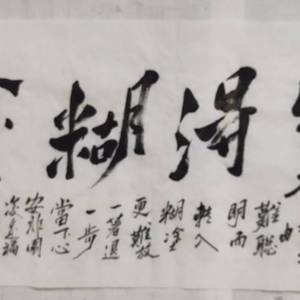 得糊
由
難聰
明而
轉入
糊塗
更難放
一著退
一步
當下心
安非圖
来福